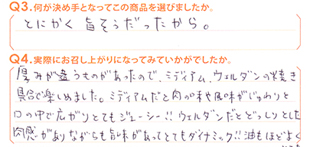 Q3.何が決め手となってこの商品を選びましたか。
とにかく旨そうだったから。
Q4.実際にお召し上がりになってみていかがでしたか。
厚みが違うものがあったので、ミディアム、ウェルダンの焼き
具合で楽しめました。ミディアムだと肉の味や風味がじゅわりと
口の中で広がりとてもジューシー!!ウェルダンだとどっしりとした
肉感がありながらも旨味があってとてもダイナミック!!油もほどよく